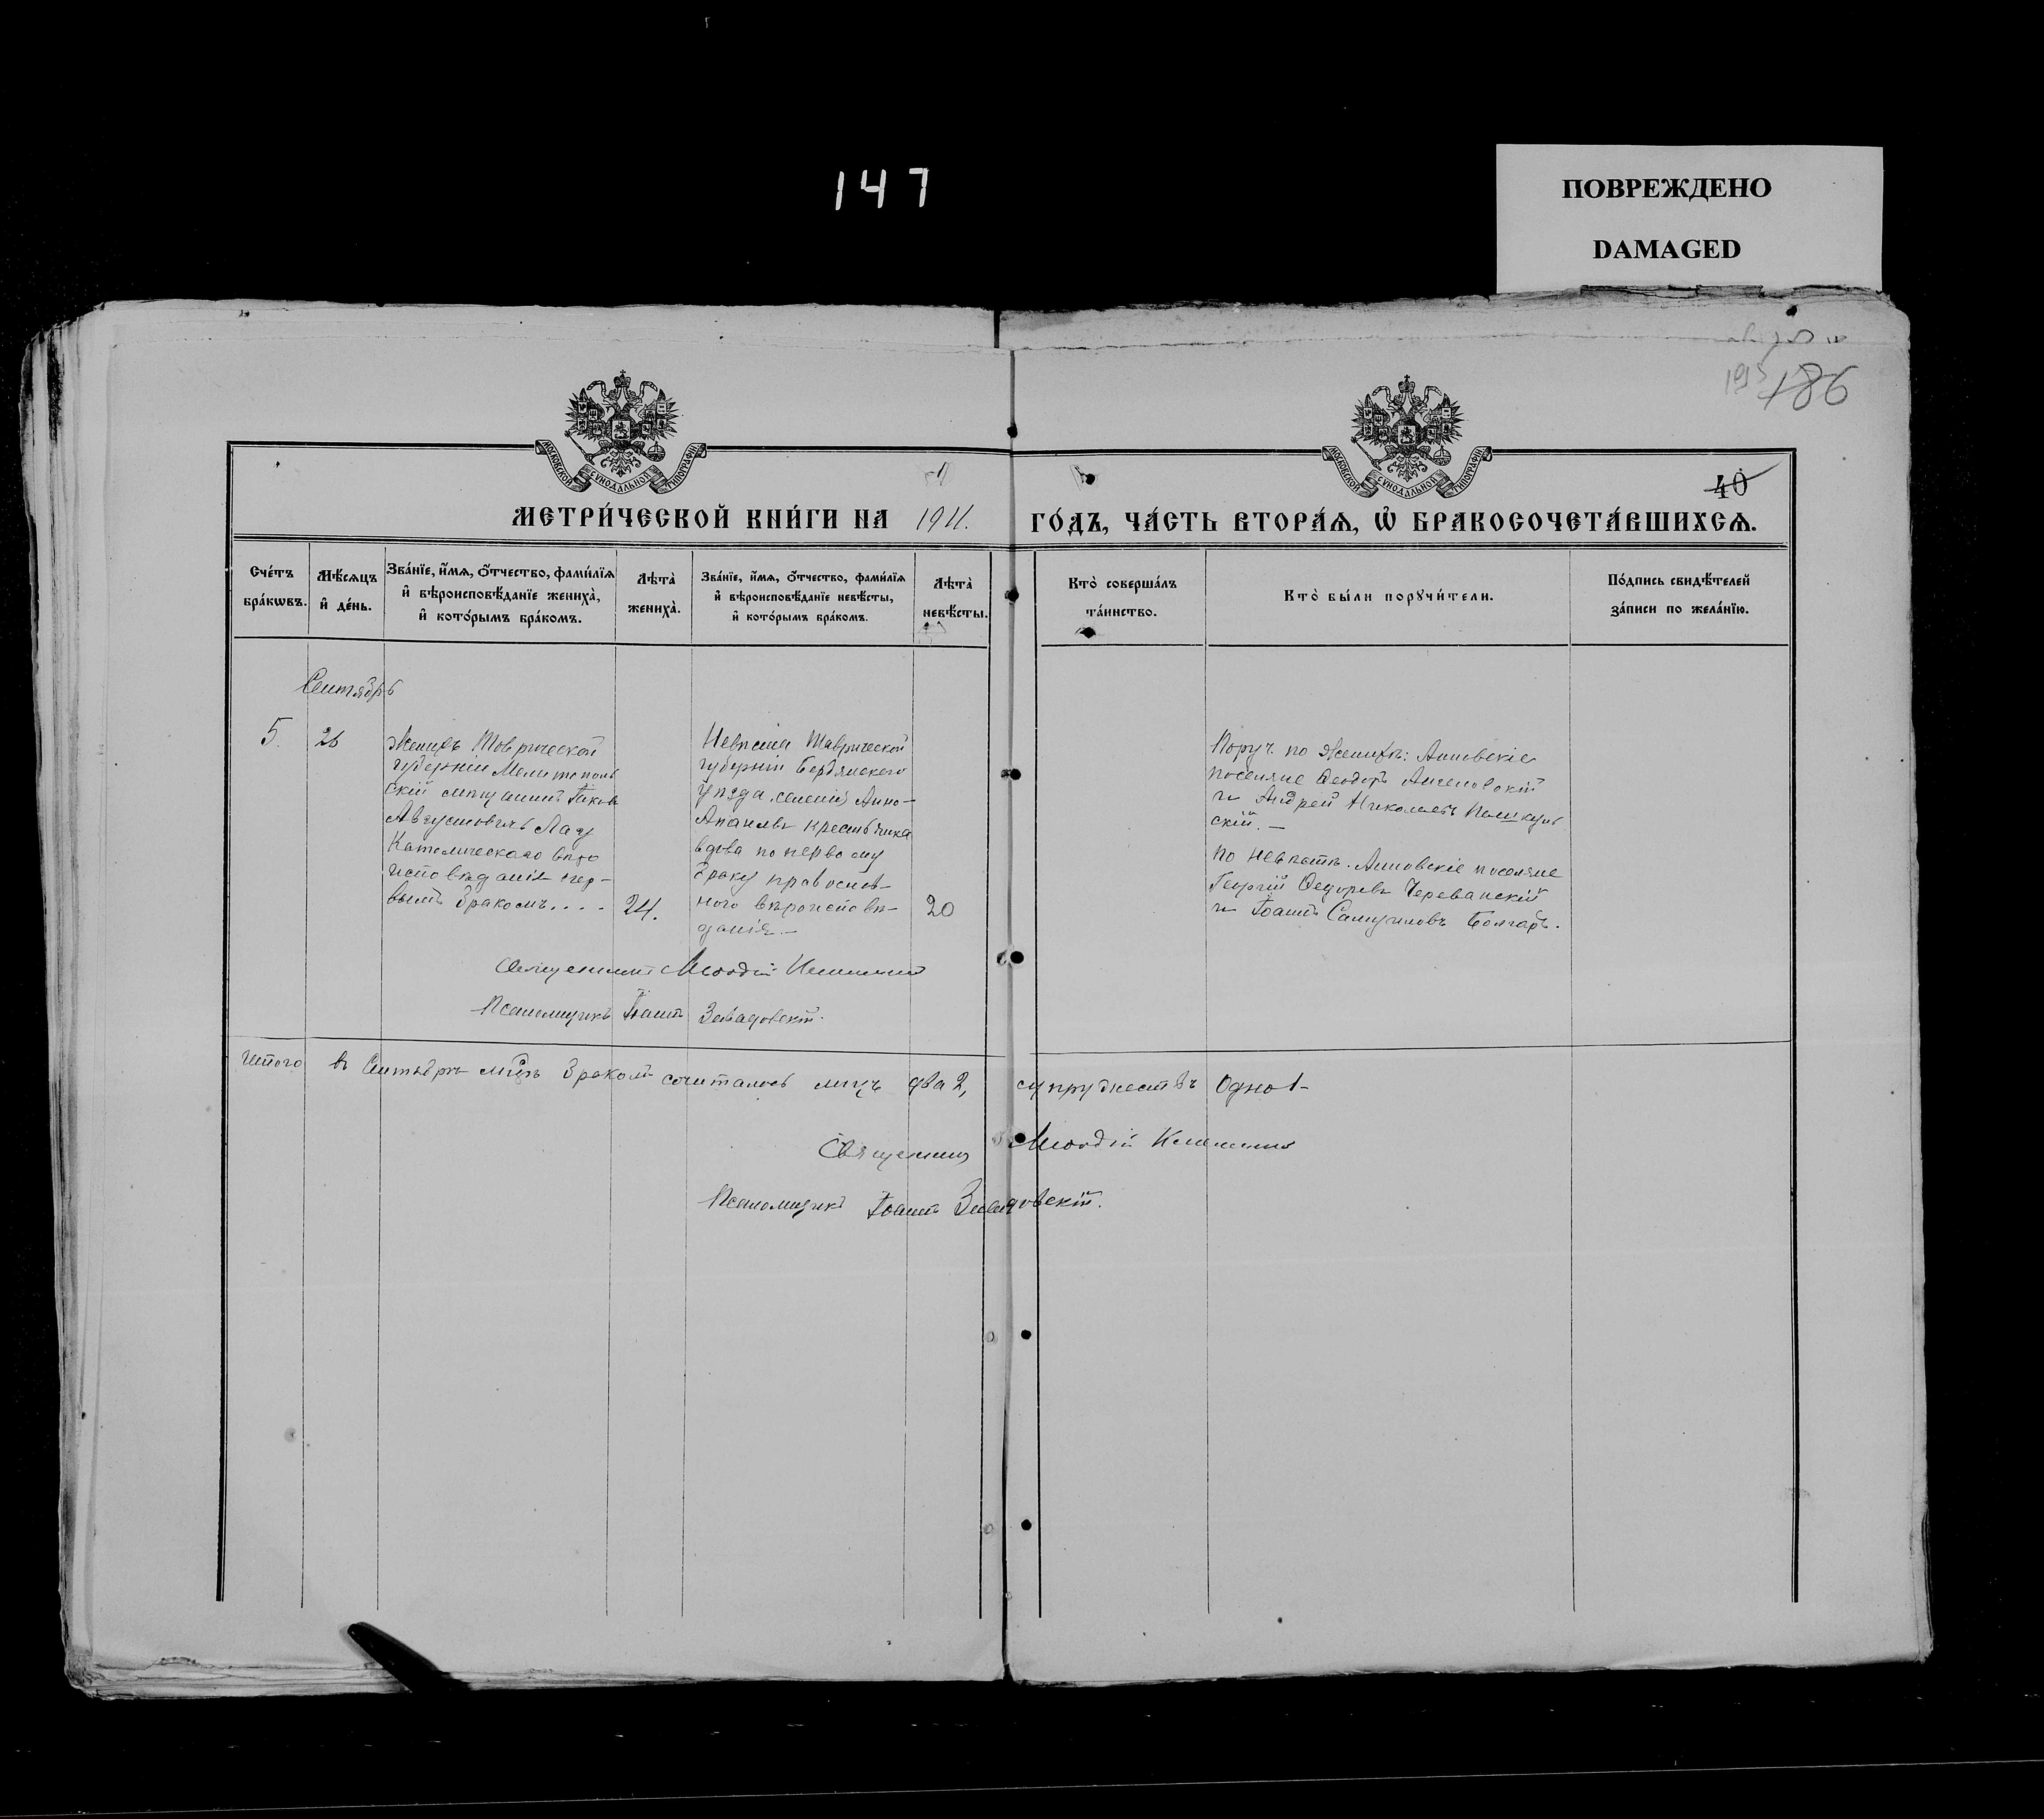 147
ПОВРЕЖДЕНО
DAMAGED
186
40
МОСКОВСКОЙ СѴНОДАЛЬНОЙ ТИПОГРАФІИ
МОСКОВСКОЙ СѴНОДАЛЬНОЙ ТИПОГРАФІИ
МЕТРИ́ЧЕСКОЙ КНИ́ГИ НА 1911. ГО́ДЪ, ЧА́СТЬ ВТОРА́Ѧ, Ѡ҆ БРАКОСОЧЕТА́ВШИХСѦ.
Сче́тъ
бра́кѡвъ.
Мѣ́сѧцъ
и҆ де́нь.
Зва́нїе, и҆́мѧ, ѻ҆́тчество, фами́лїѧ
и҆ вѣроисповѣ́данїе жениха̀,
и҆ кото́рымъ бра́комъ.
Лѣта̀
жениха̀.
Зва́нїе, и҆́мѧ, ѻ҆́тчество, фами́лїѧ
и҆ вѣроисповѣ́данїе невѣ́сты,
и҆ кото́рымъ бра́комъ.
Лѣта̀
невѣ́сты.
Кто̀ соверша́лъ
та́инство.
Кто̀ бы́ли порꙋчи́тели.
По́дпись свидѣ́телей
за́писи по жела́нїю.
Сентябрь
5. 26
Женихъ Таврической
губерніи Мелитополь
скій мѣщанинъ Іаковъ
Августовичъ Лау
Католическаго вѣро
исповѣданія пер-
вымъ бракомъ....
24.
Невѣста Таврической
губерніи Бердянскаго
уѣзда, селенія Анно-
крестьянка
вдова по первому
браку православ-
наго вѣроисповѣ-
данія.-
20
Поруч. по женихѣ: Анновскіе
поселяне Ѳеодоръ
и Андрей Николаевъ
скій.-
по невѣстѣ. Анновскіе поселяне
Георгій Ѳедоровъ Череванскій
и Іоаннъ Самуиловъ Болгаръ.
Священникъ Меѳодій
Псаломщикъ Іоаннъ Завадовскій.
Итого въ Сентябрѣ мцѣ бракомъ сочеталось лицъ два 2, супружествъ Одно 1-
Священникъ Меѳодій
Псаломщикъ Іоаннъ Завадовскій.